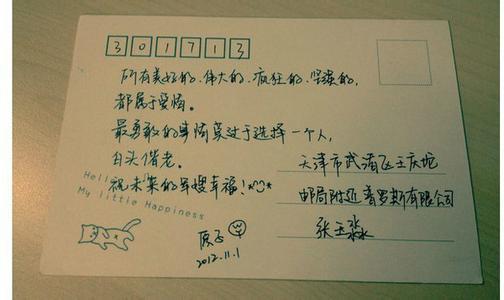 301713
所有美好的、伟大的、疯狂的、坚贞的,
都属于爱情。
最勇敢的事情莫过于选择一个人,
白头偕老。
祝未来的军嫂幸福!
Hello
My little Happiness
天津市武清区王庆坨
邮局附近普罗斯有限公司
张玉淼
2012.11.1